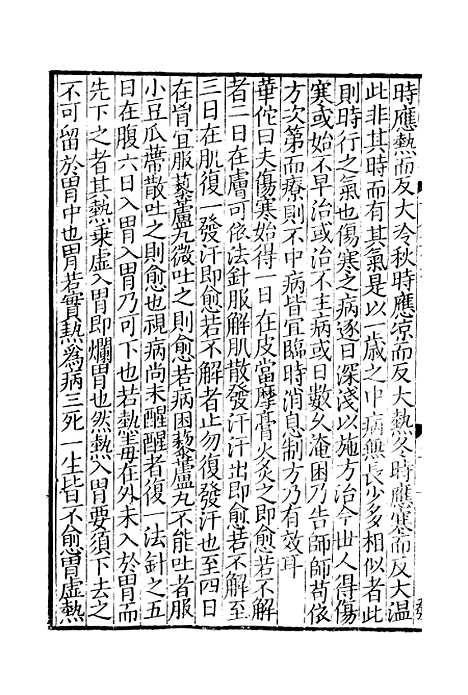 時應熱而反大冷秋時應凉而反大熱冬時應寒而反大温
此非其時而有其氣是以一歲之中病無長少多相似者此
則時行之氣也傷寒之病逐日深淺以施方治今世人得傷
寒或始不早治或治不主病或日數乆淹困乃告師師苟依
方次第而療則不中病皆宜臨時消息制方乃有效耳
華佗曰夫傷寒始得一日在皮當摩膏火灸之即愈若不解
者二日在膚可依法針服解肌散發汗汗出即愈若不解至
三日在肌復一發汗即愈若不解者止勿復發汗也至四日
在胷宜服藜蘆丸微吐之則愈若病困藜蘆丸不能吐者服
小豆瓜蔕散吐之則愈也視病尚未醒醒者復一法針之五
日在腹六日入胃入胃乃可下也若熱毒在外未入於胃而
先下之者其熱乗虚入胃即爛胃也然熱入胃要須下去之
不可留於胃中也胃若實熱為病三死一生皆不愈胃虚熱